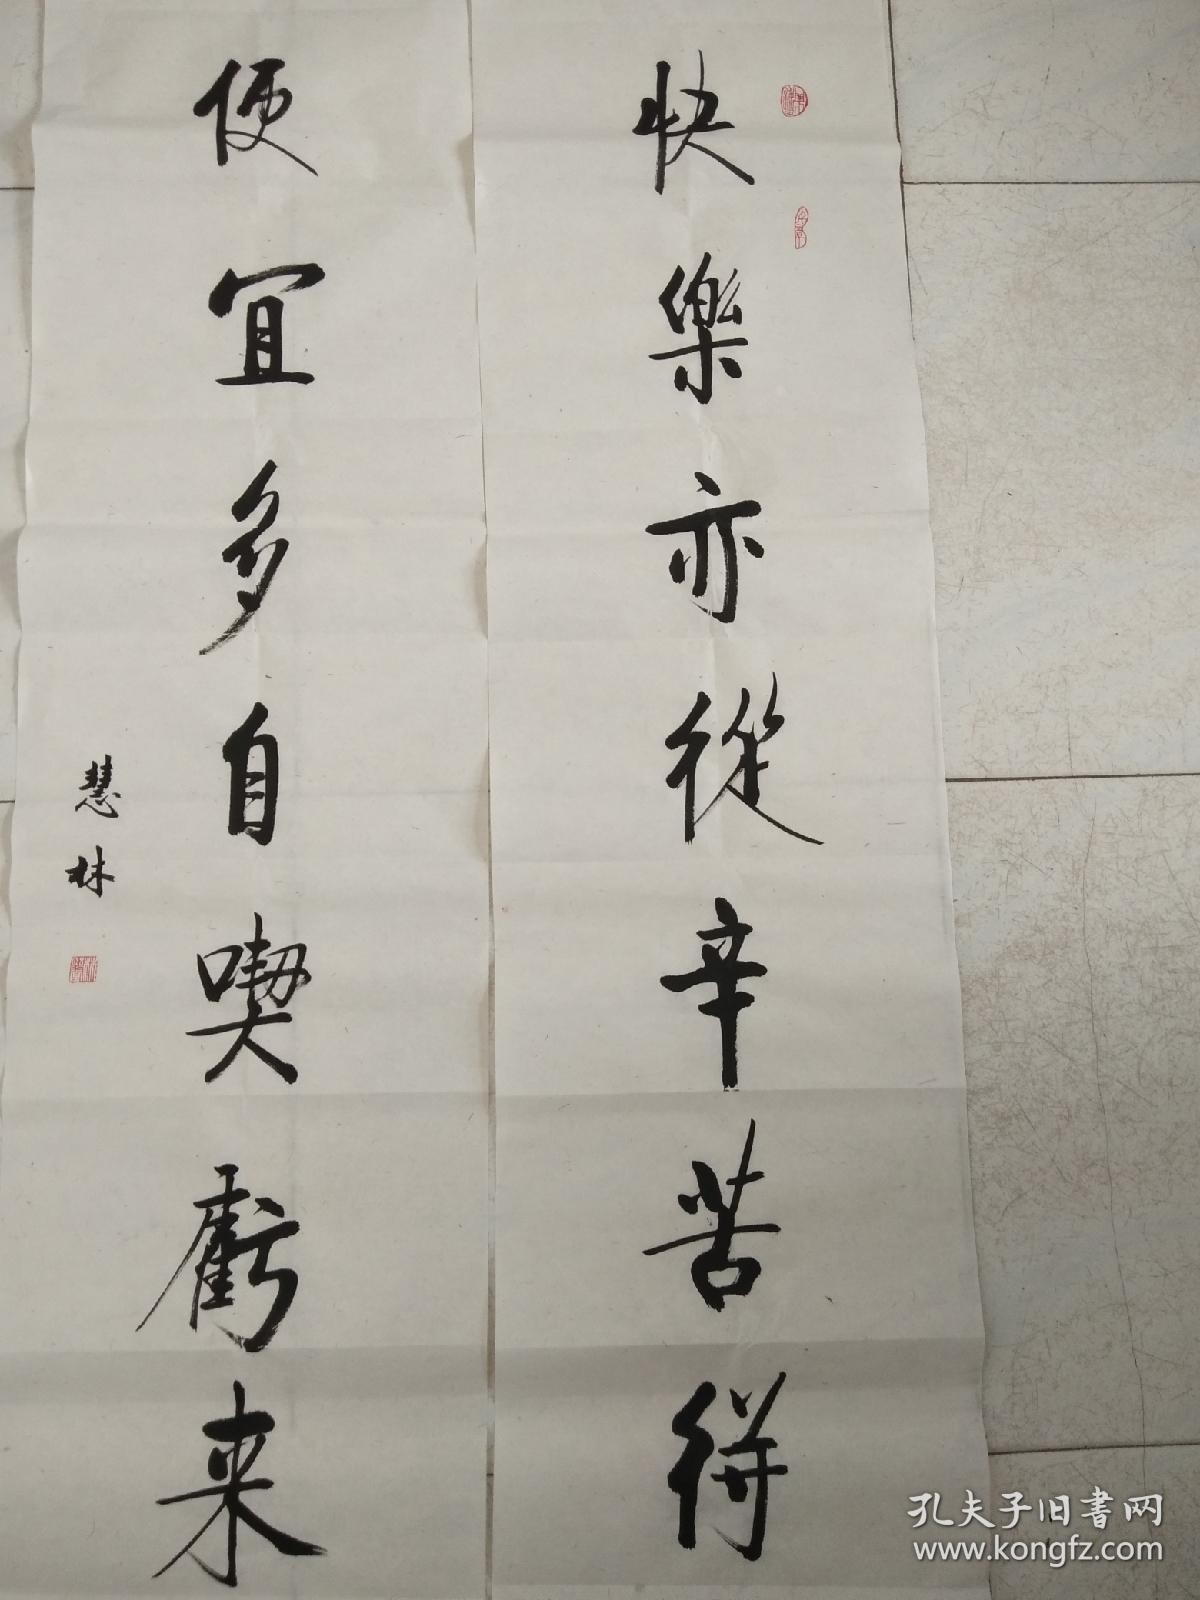 快樂亦從辛苦得
便宜多自喫虧来
慧林
孔夫子旧書网
www.kongfz.com